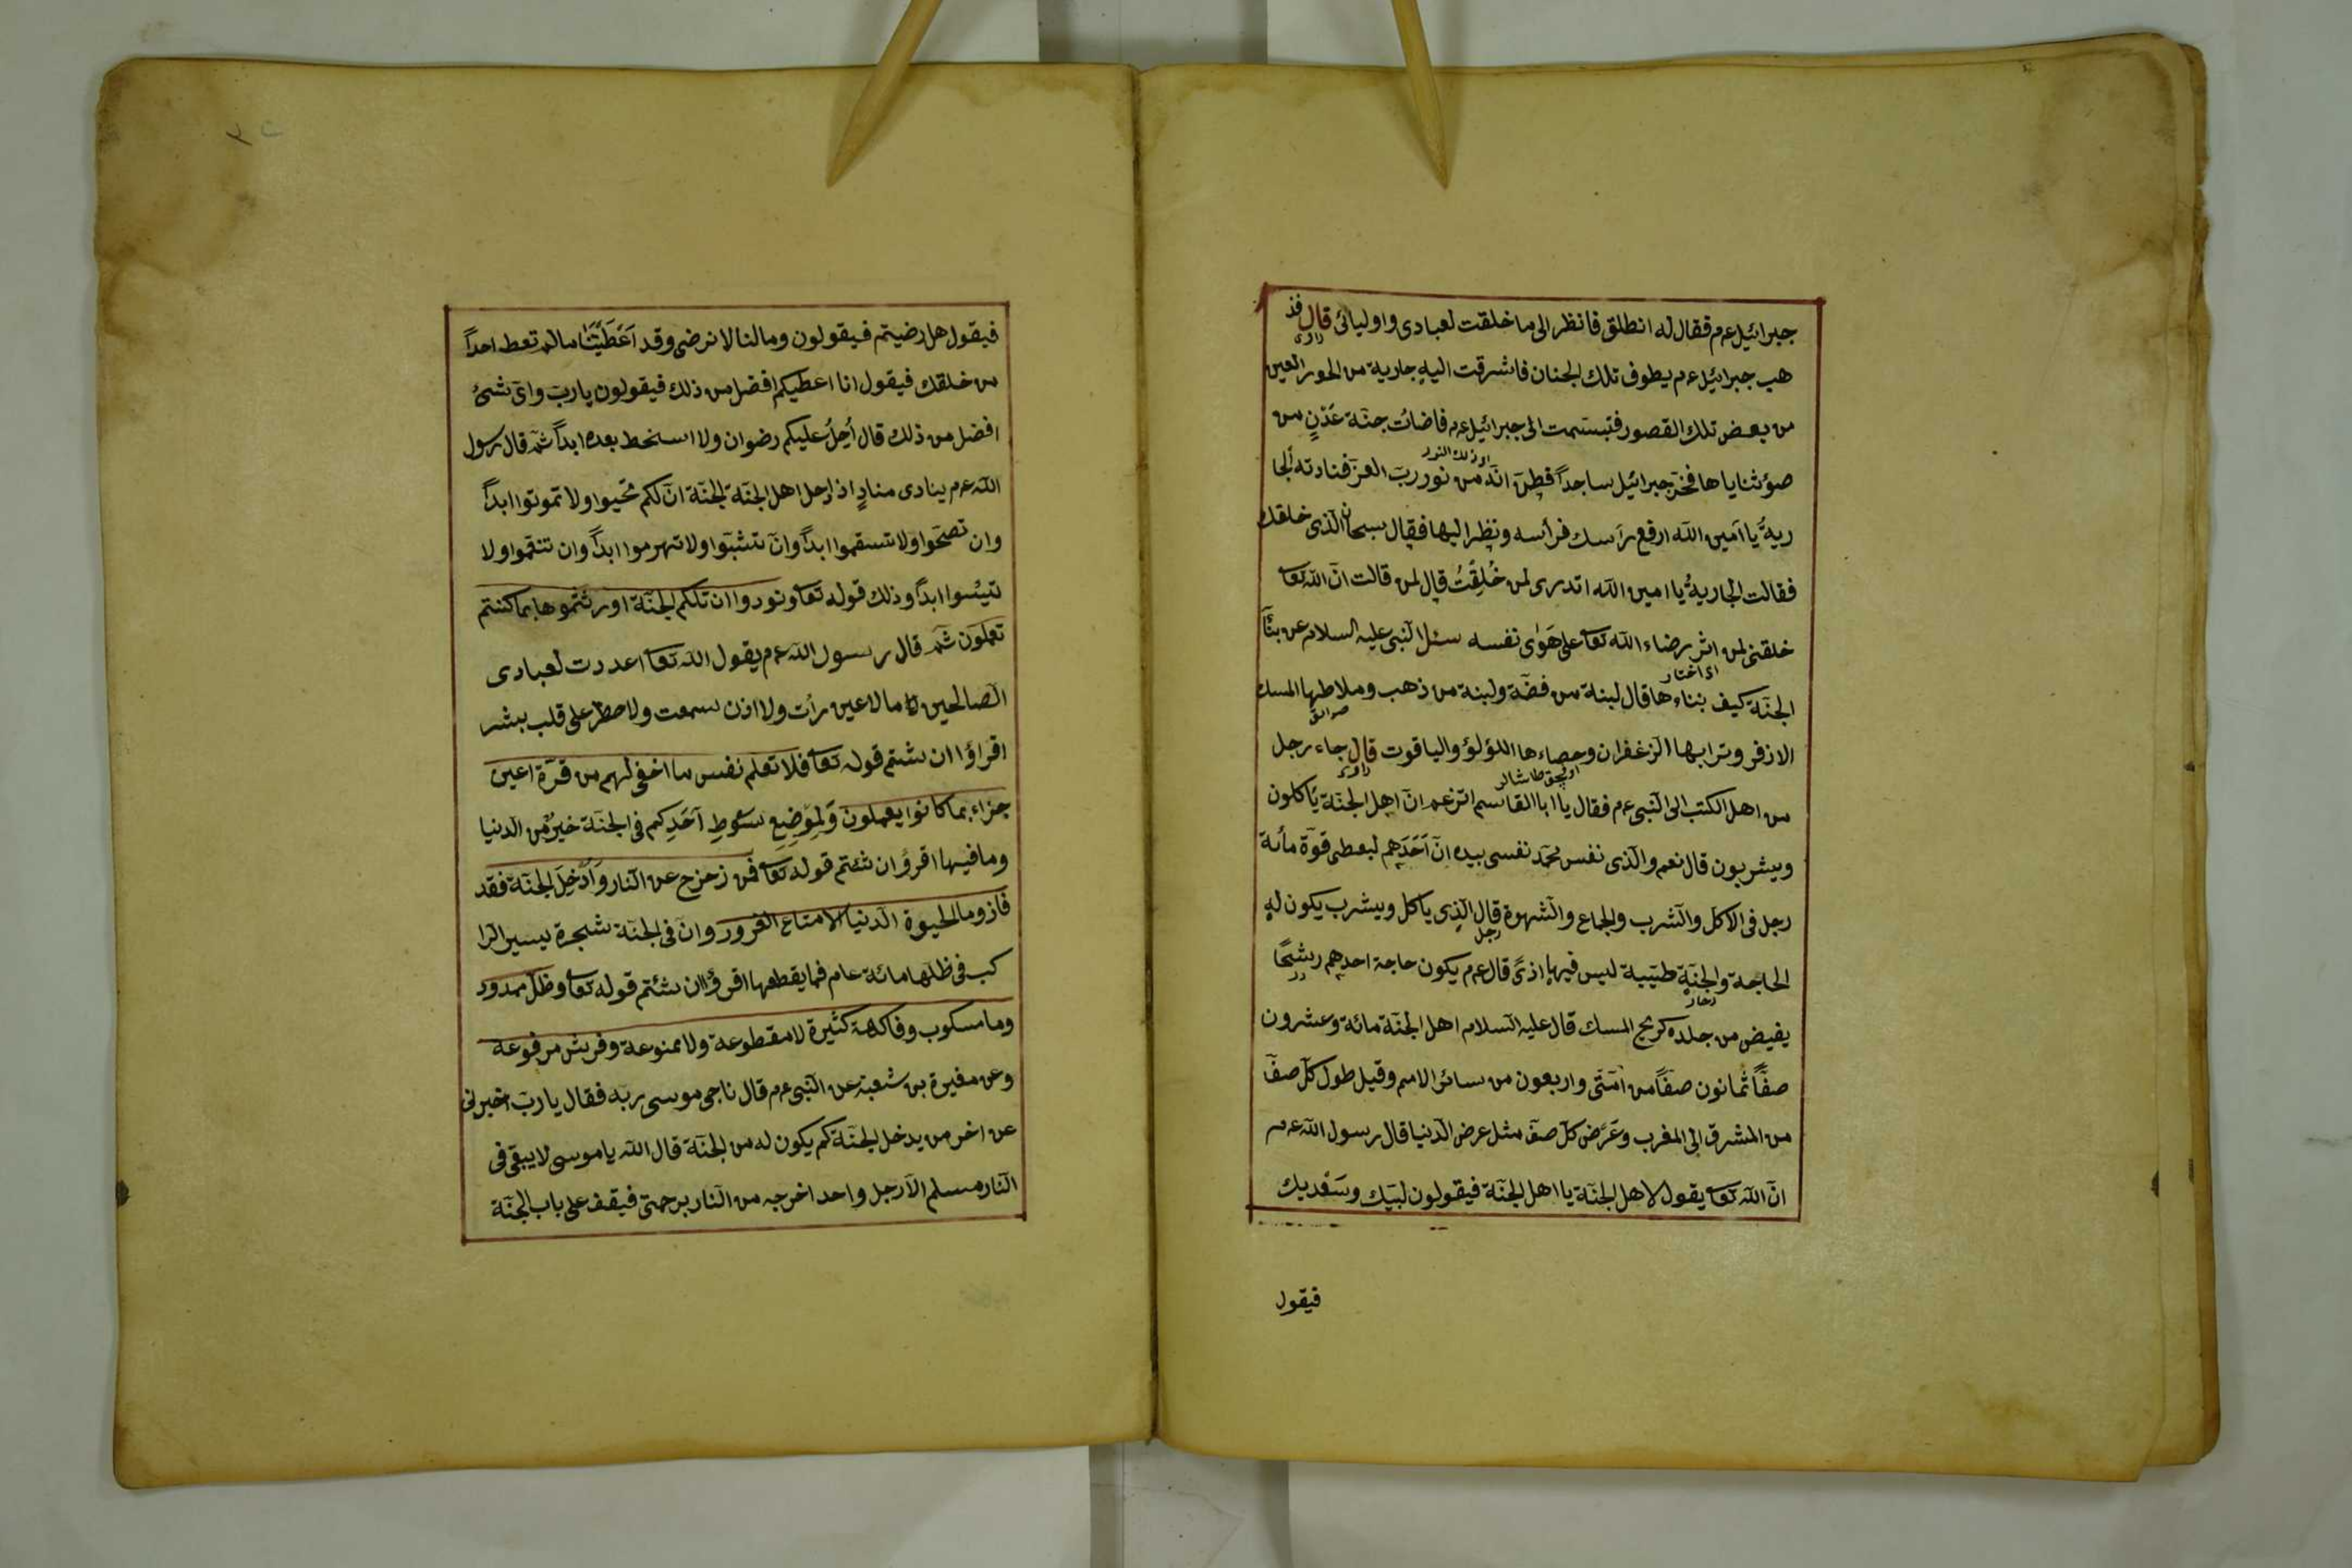 جبرائيل عم فقال له انطلق فانظر الى ما خلقت لعبادى واوليائى قال فذ
راوى
هب جبرائيل عم يطوف تلك الجنان فاشرقت اليه جارية من الحور العين
من بعض تلك القصور فتبسّمت الى جبرائيل عم فاضائت جنّة عَدْنٍ من
او ذلك النور
ضوء ثناياها فخرّ جبرائيل ساجداً فظنّ انّه من نور ربّ العزّ فنادته الجا
ريةُ يا اَمين اللّه ارفع رأسك فرأسه ونظر اليها فقال سبحان الّذى خلقك
فقالت الجاريةُ يا امين اللّه اتدرى لمن خُلِقْتُ قال لمن قالت انّ اللّه تعا
خلقنى لمن اثر رضاء اللّه تعا على هَوٰى نفسه سئل النّبى عليه السلام عن بنَّاَ
اى اختار
الجنّة كيف بناءها قال لبنة من فضّة ولبنة من ذهب وملاطها المسك
الاذفر وترابها الزعفران وحصاءها اللؤلؤ والياقوت قال جاء رجل
راوى
من اهل الكتب الى النّبى عم فقال يا ابا القاسم اتزعم انّ اهل الجنّة يأكلون
ويشربون قال نعم والّذى نفس محمّد نفسى بيده انّ اَحَدَهم ليعطى قوّة مأئة
رجل فى الاكل والشرب والجماع والشهوة قال الّذى ياكل ويشرب يكون له
رجل
الحاجة والجنّة طيّبة ليس فيها اذىً قال عم يكون حاجة احدهم رشحًا
يفيض من جلده كريح المسك قال عليه السلام اهل الجنّة مائة وعشرون
صفّاً ثمانون صفّاً من اُمّتى واربعون من سائر الامم وقيل طول كلّ صفّ
من المشرق الى المغرب وعَرْض كلّ صفّ مثل عرض الدّنيا قال رسول اللّه عم
انّ اللّه تعا يقول لاهل الجنّة يا اهل الجنّة فيقولون لبّيك وسَعْديك
فيقول
فيقول هل رضيتم فيقولون ومالنا لا نرضى وقد اَعْطَيْتَنَا مالم تعط احداً
من خلقك فيقول انا اعطيكم افضل من ذلك فيقولون يا ربّ واىّ شئ
افضل من ذلك قال اُحِلُّ عليكم رضوان ولا اسخط بعده ابداً ثمّ قال رسول
اللّه عم ينادى منادٍ اذ ادخل اهل الجنّة الجنّة انّ لكم تحيوا ولا تموتوا ابداً
وان تصحّوا ولا تسقموا ابداً وانّ تشبّوا ولا تهرموا ابداً وان تنعّموا ولا
تيئسوا ابداً وذلك قوله تعا ونودوا ان تلكم الجنّة اورثتموها بما كنتم
تعملون ثمّ قال رسول اللّه عم يقول اللّه تعا اعددت لعبادى
الصالحين ما لا عين رأت ولا اذن سمعت ولا خطر على قلب بشر
اقرؤا ان شئتم قوله تعا فلا تعلم نفس ما اخفى لهم من قرّة اعين
جزاء بما كانوا يعملون وَلمَوْضِع سَوْطِ اَحَدِكم فى الجنّة خيرٌ من الدنيا
وما فيها اقرؤ ان شئتم قوله تعا فمن زحزح عن النّار وَاُدْخِلَ الجنّة فقد
فاز وما الحيوة الدنيا الا متاع الغرور وانّ فى الجنّة شجرة يسير الرّا
كب فى ظلّها مائة عام فما يقطعها اقرؤا ان شئتم قوله تعا وظلّ ممدود
وما مسكوب وفاكهة كثيرة لا مقطوعة ولا ممنوعة وفرش مرفوعة
وعن مغيرة بن شعبة عن النّبى عم قال ناجى موسى ربّه فقال يا ربّ اخبرنى
عن اخر من يدخل الجنّة كم يكون له من الجنّة قال اللّه يا موسى لا يبقى فى
النّار مسلم الاّ رجل واحد اخرجه من النّار برحمتى فيقف على باب الجنّة